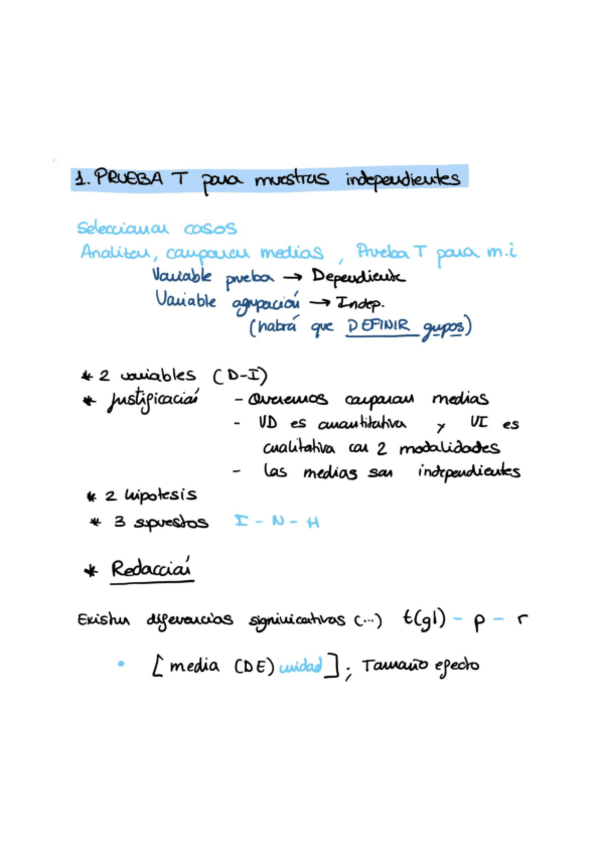 1. PRUEBA T para muestras independientes
Seleccionar casos
Analizar, comparar medias, Prueba T para m.i
Variable prueba → Dependiente
Variable agrupación → Indep.
(habrá que DEFINIR grupos)
* 2 variables (D-I)
* Justificación - Queremos comparar medias
- VD es cuantitativa y VI es
cualitativa con 2 modalidades
- las medias son independientes
* 2 hipotesis
* 3 supuestos I - N - H
* Redacción
Existen diferencias significativas (...) t(gl) - p - r
• [media (DE) unidad]; Tamaño efecto